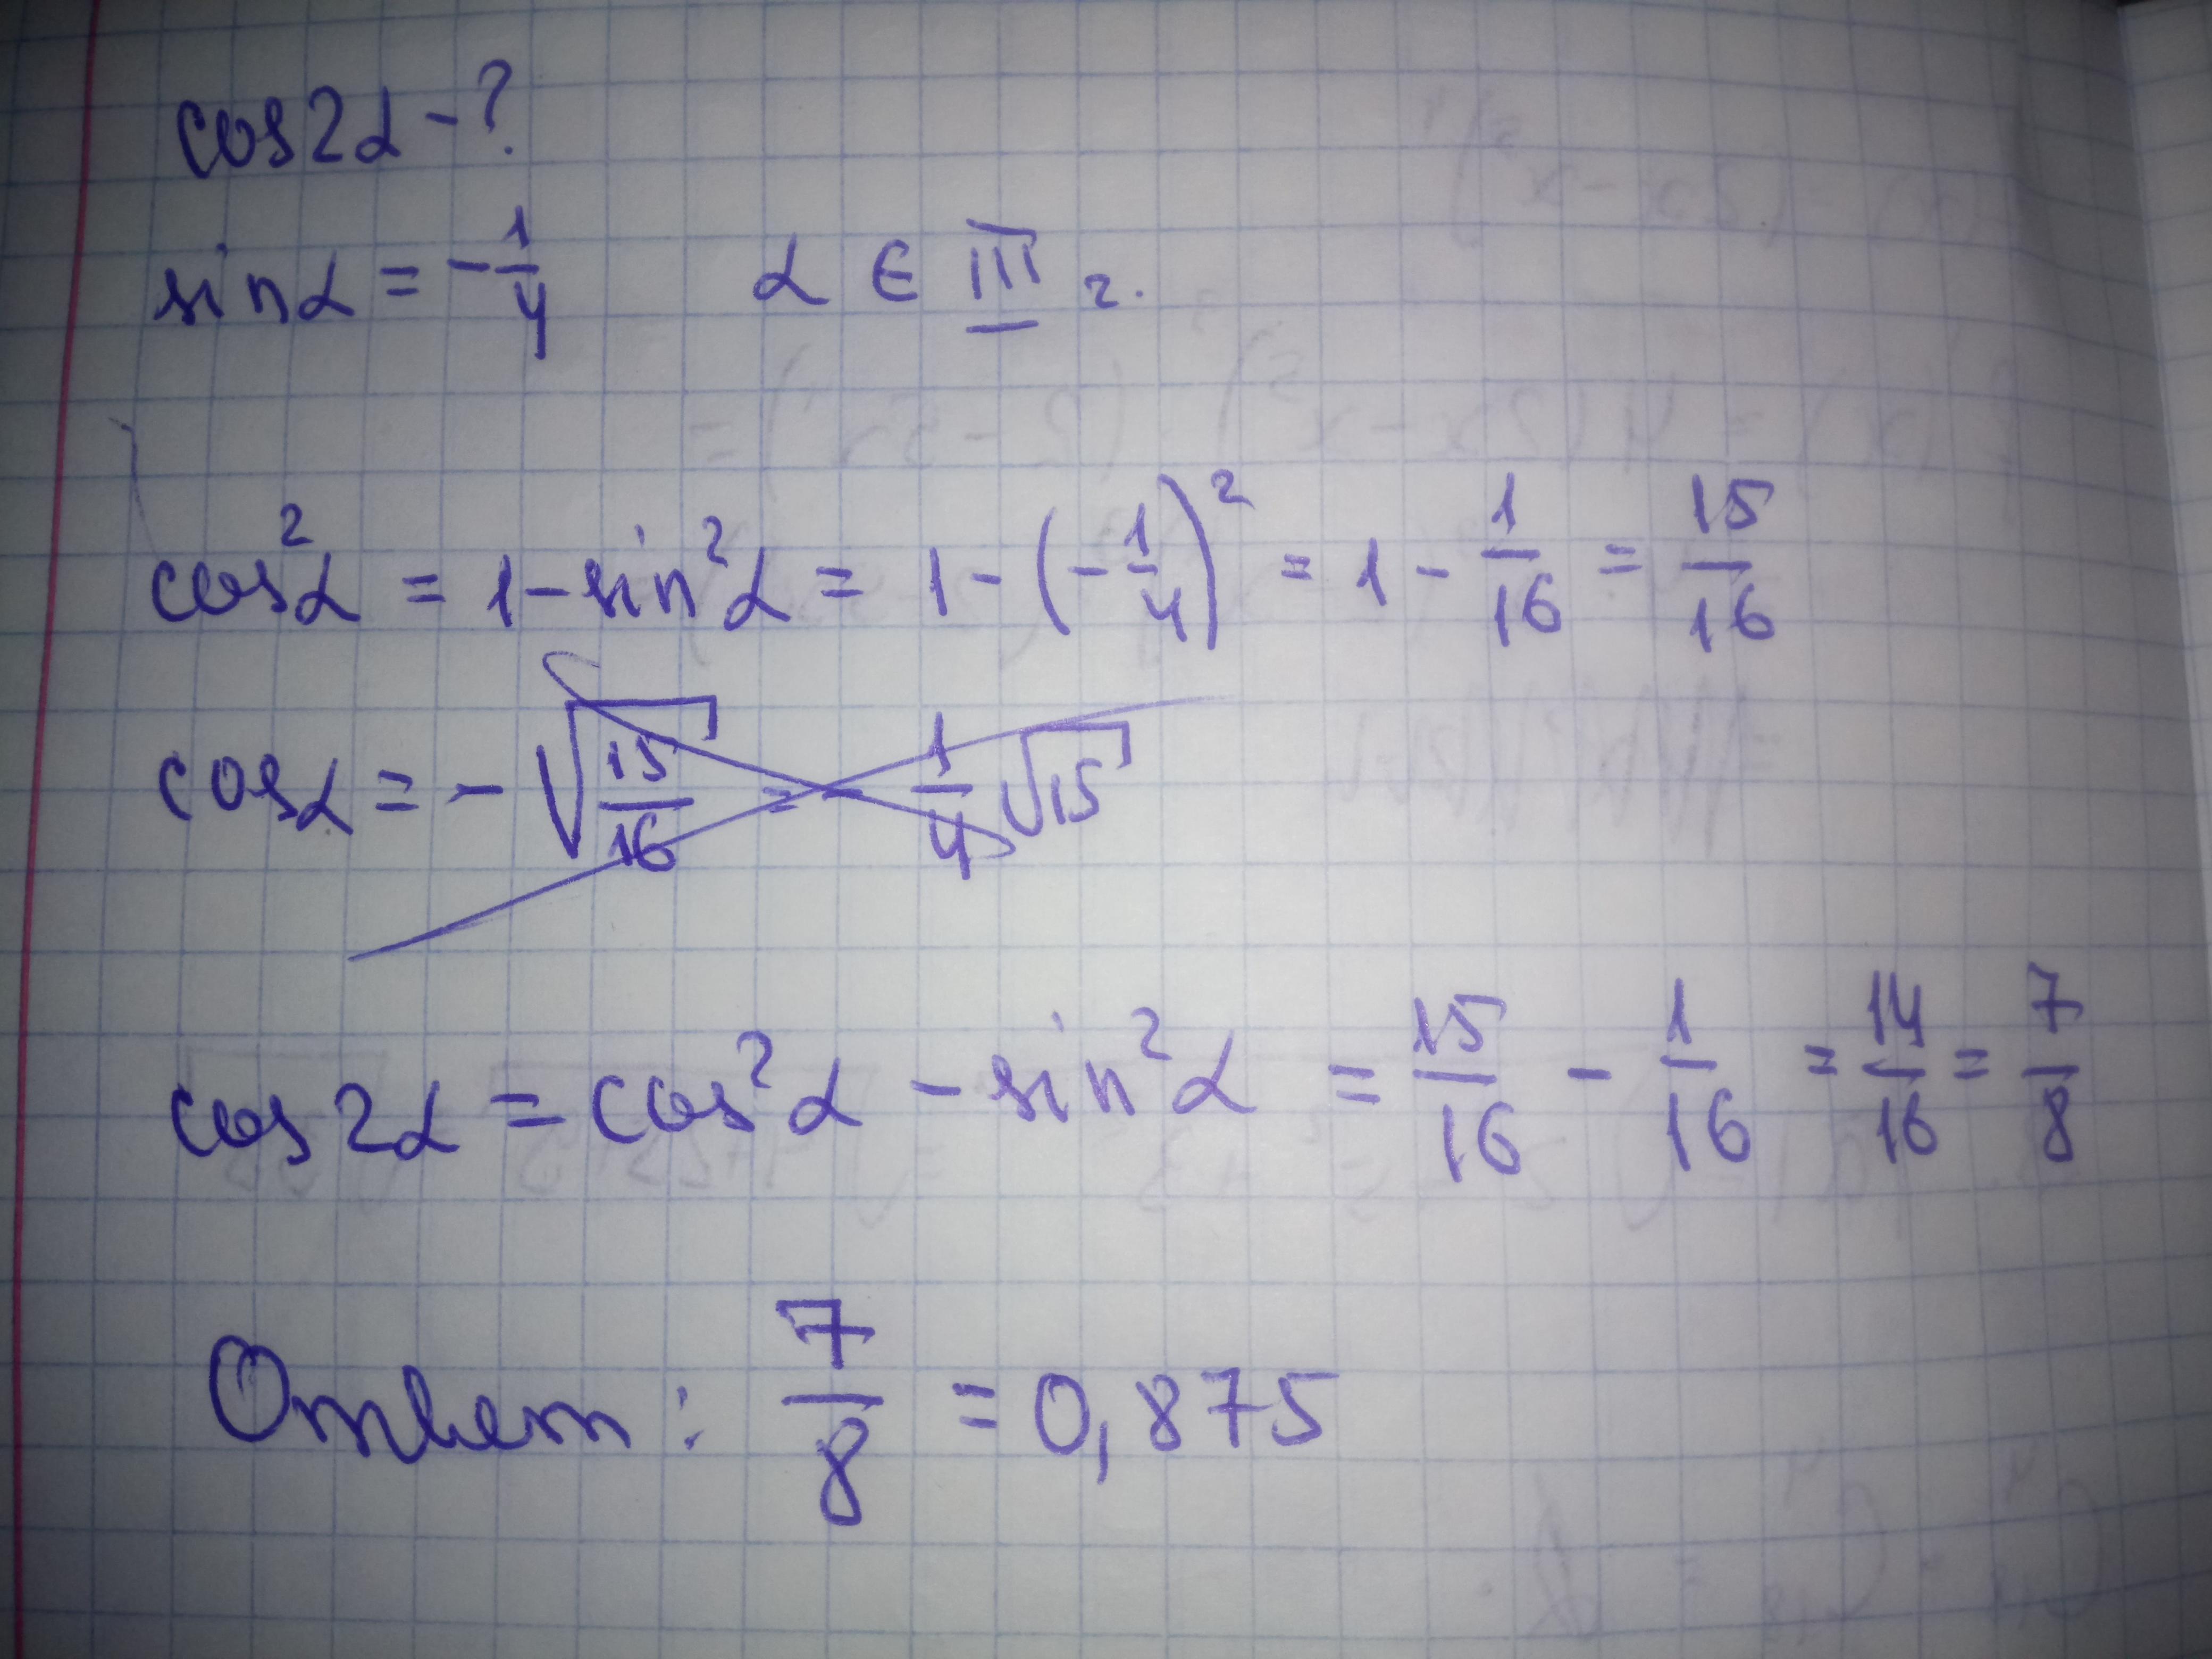 cos2α - ?
sinα = -1/4 α ∈ III г.
cos²α = 1 - sin²α = 1 - (-1/4)² = 1 - 1/16 = 15/16
cosα = - √(15/16) = - 1/4 √15
cos2α = cos²α - sin²α = 15/16 - 1/16 = 14/16 = 7/8
Ответ: 7/8 = 0,875